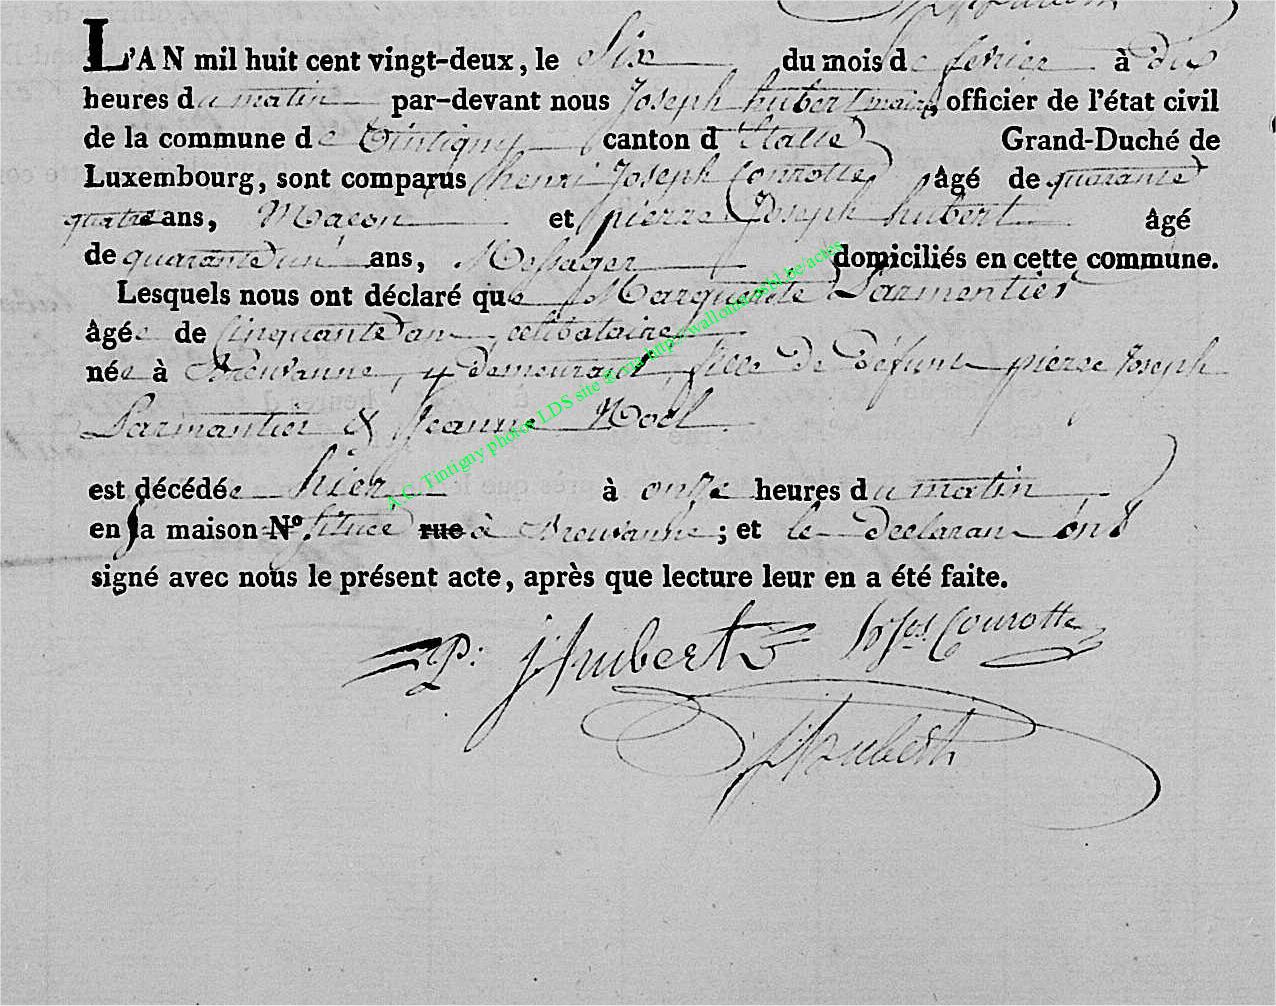 L'AN mil huit cent vingt-deux, le Six du mois de fevrier à dix
heures du matin par-devant nous Joseph hubert maire, officier de l'état civil
de la commune de Tintigny canton d'Etalle Grand-Duché de
Luxembourg, sont comparus henri Joseph Conrotte âgé de quarante
quatre ans, Macon et pierre Joseph hubert âgé
de quarante un ans, Messager domiciliés en cette commune.
Lesquels nous ont déclaré que Marguerite Parmentier
âgée de Cinquante an celibataire
née à Breuvanne, y demeurant, fille de Défunt pierre Joseph
Parmantier & Jeanne Noel
est décédée hier à onze heures du matin
en sa maison N°. située rue à Breuvanne ; et le declarans ont
signé avec nous le présent acte, après que lecture leur en a été faite.
P: j hubert h Jos Conrotte
J hubert
A.C. Tintigny photos LDS site @ via http://wallonia-asbl.be/actes